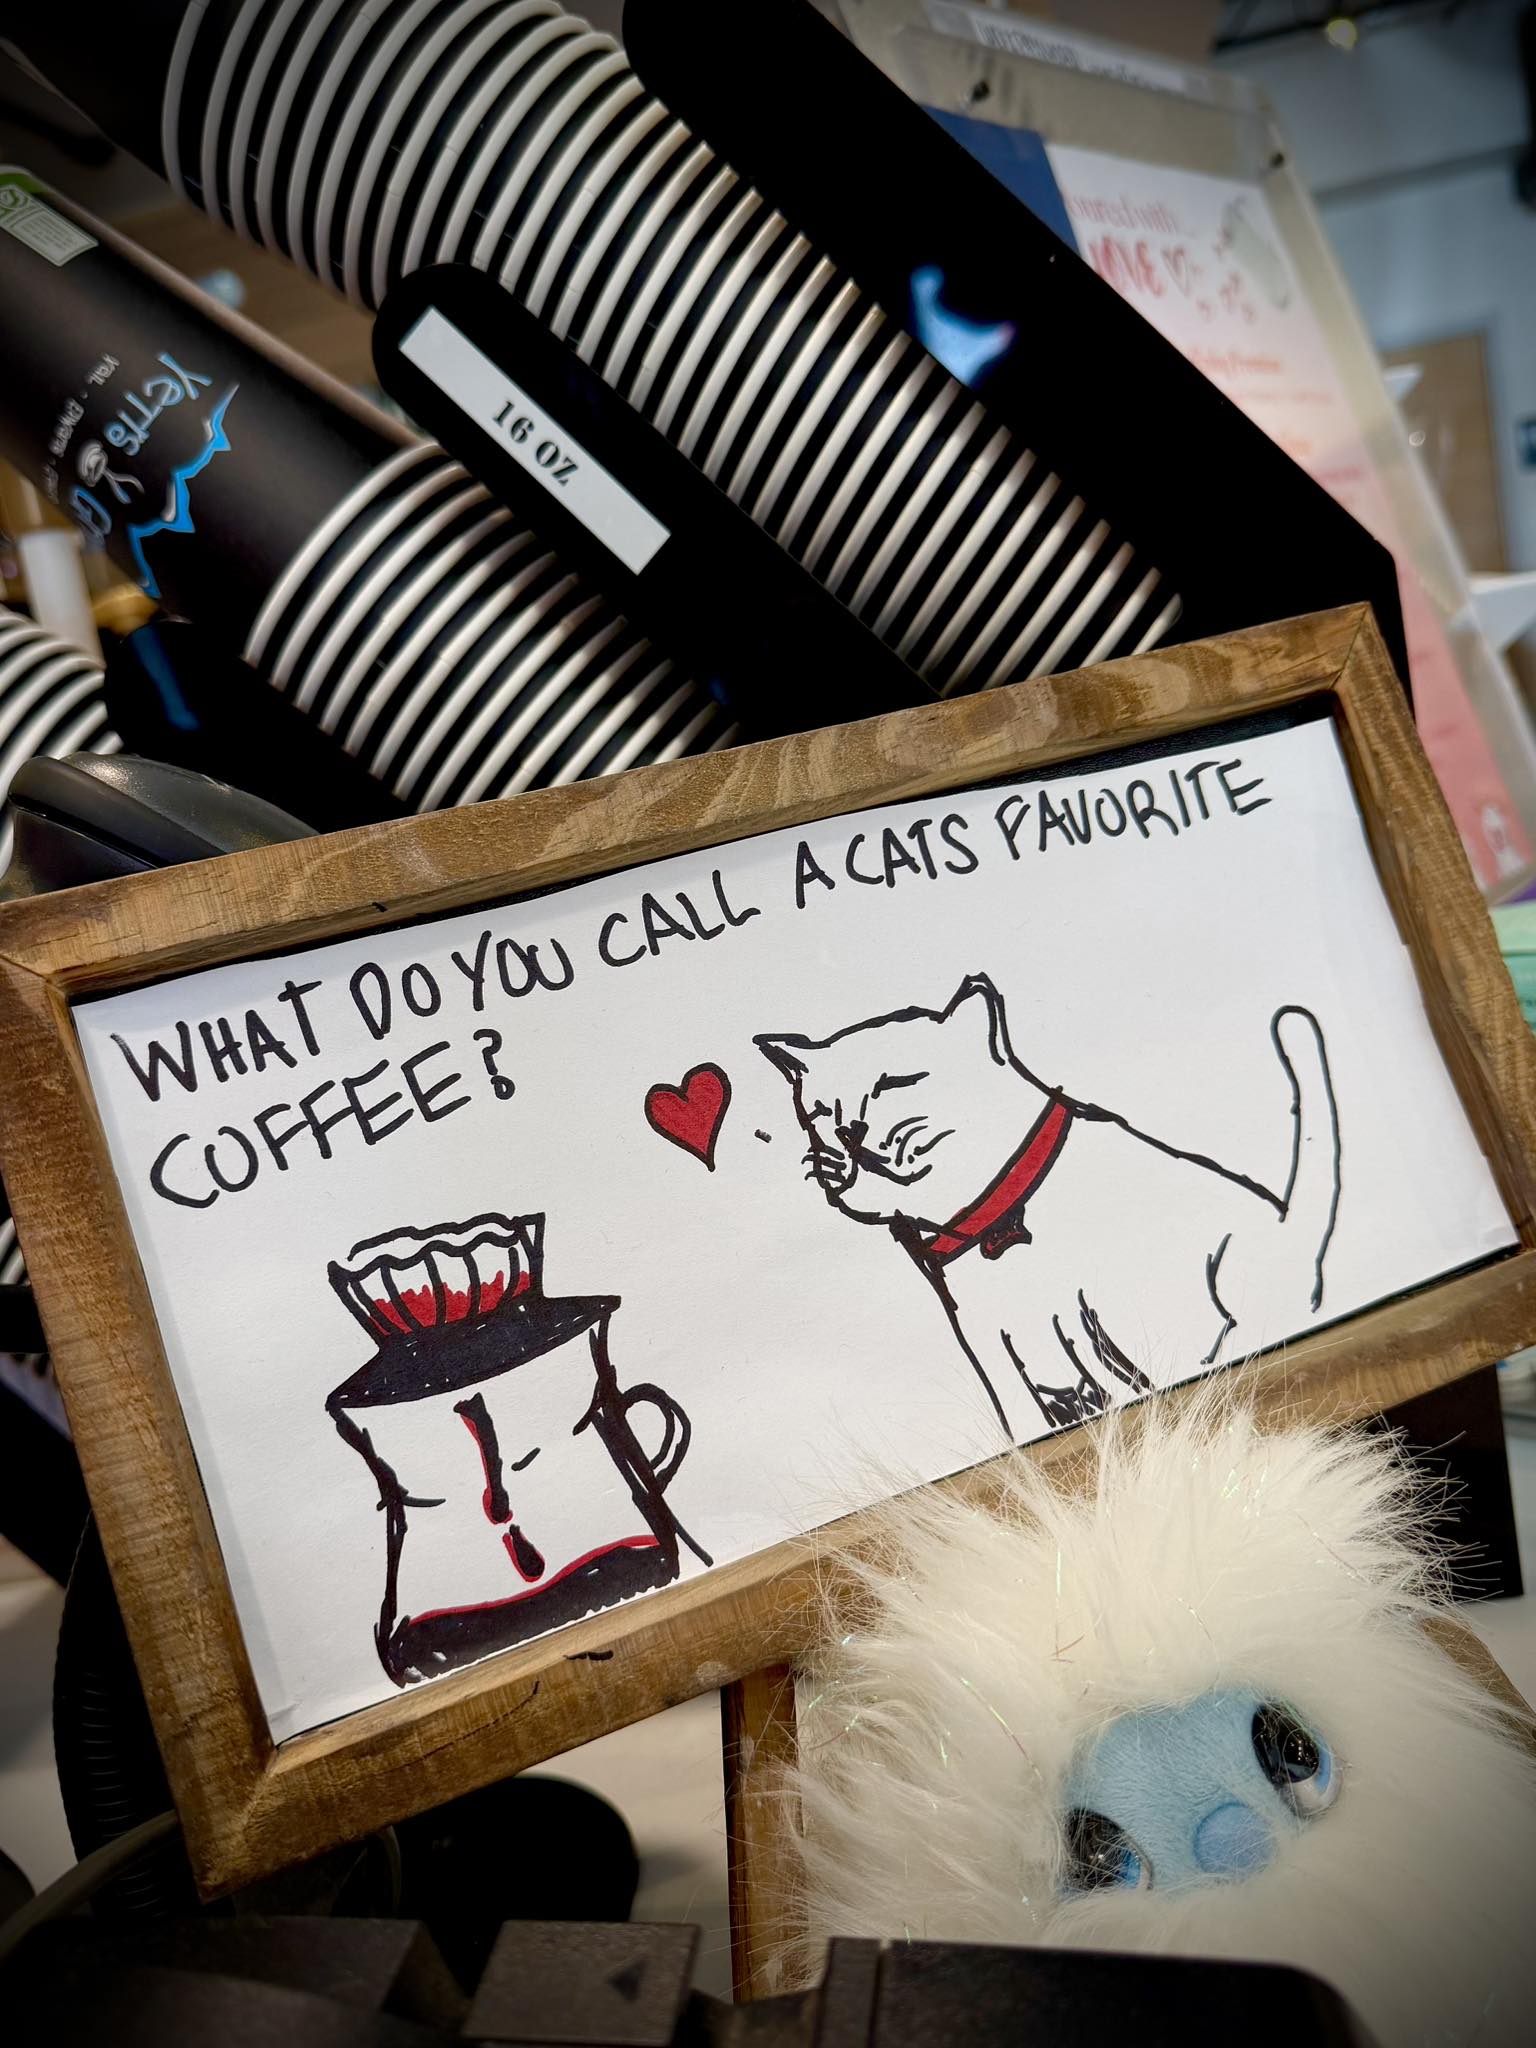 16 OZ
YETI'S
VAIL
LOVE
WHAT DO YOU CALL A CATS FAVORITE
COFFEE?